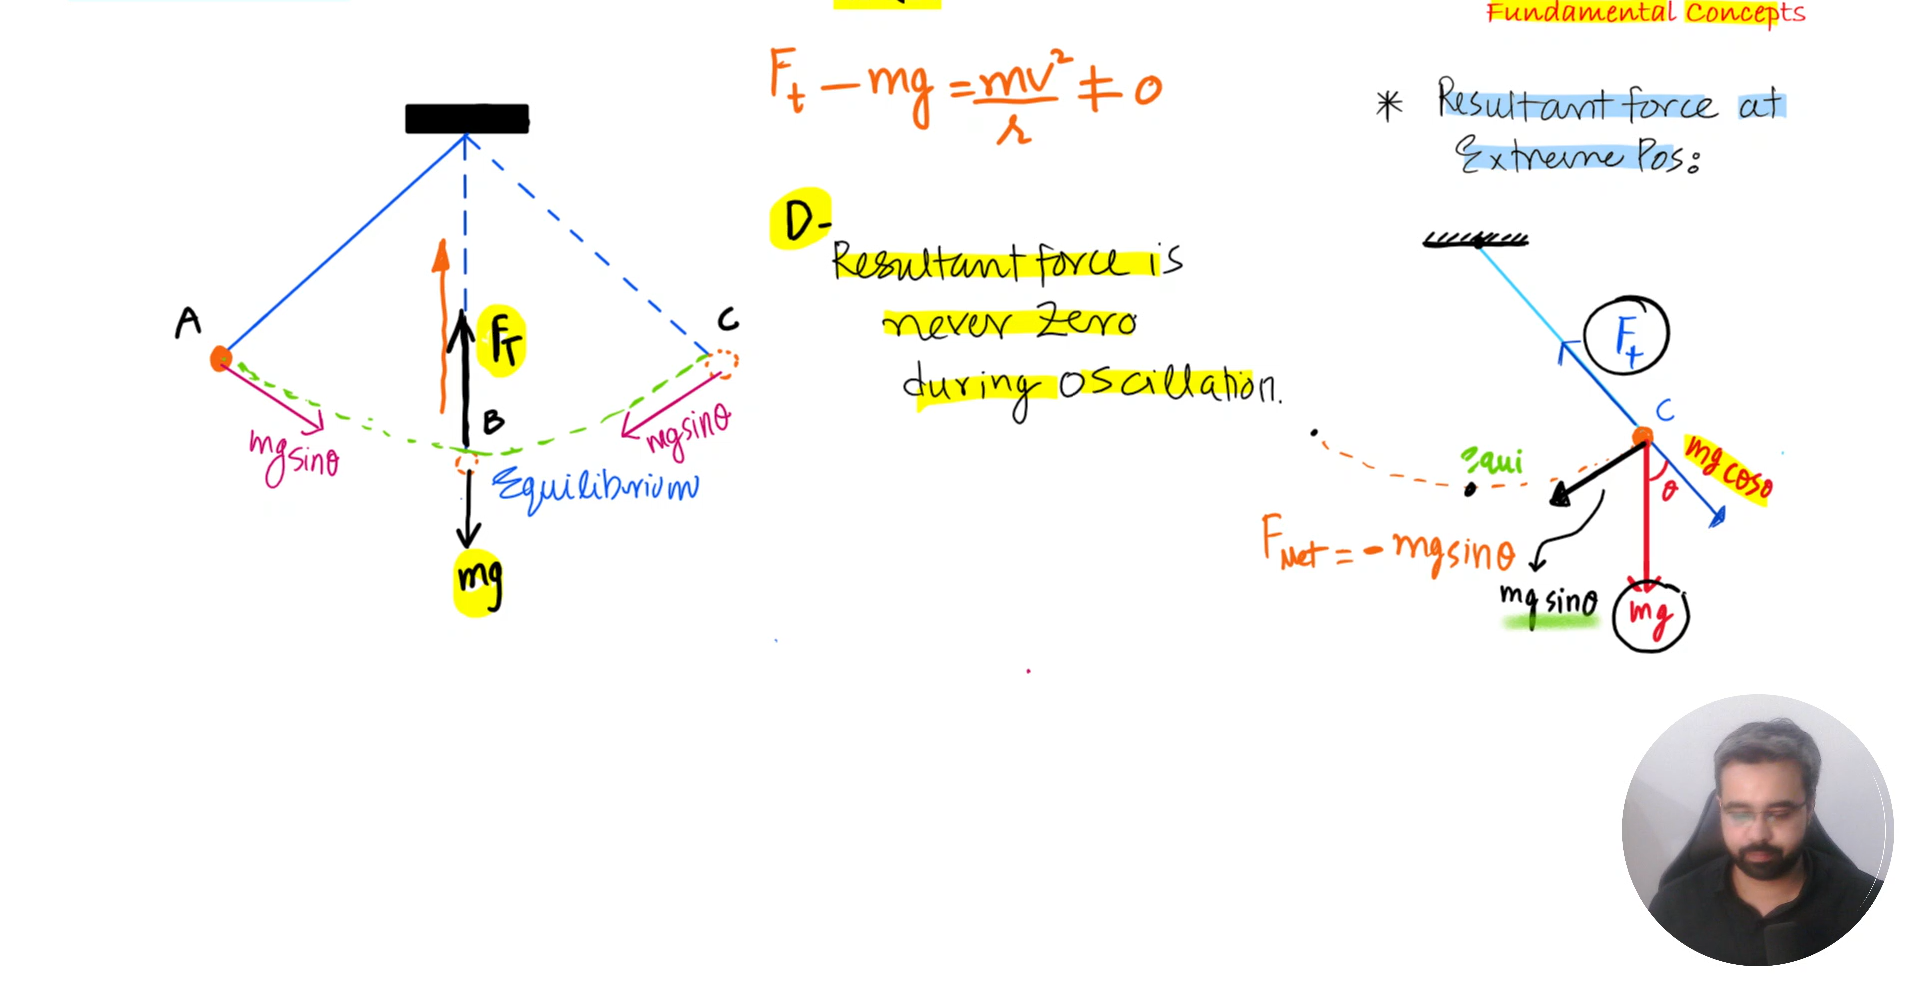 Fundamental Concepts
F_t - mg = mv²/r ≠ 0
* Resultant force at
Extreme Pos:
D-
Resultant force is
never Zero
during oscillation.
A
C
F_T
B
mg sinθ
mg sinθ
Equilibrium
mg
F_t
C
mg cosθ
θ
Equi
F_Net = - mg sinθ
mg sinθ
mg